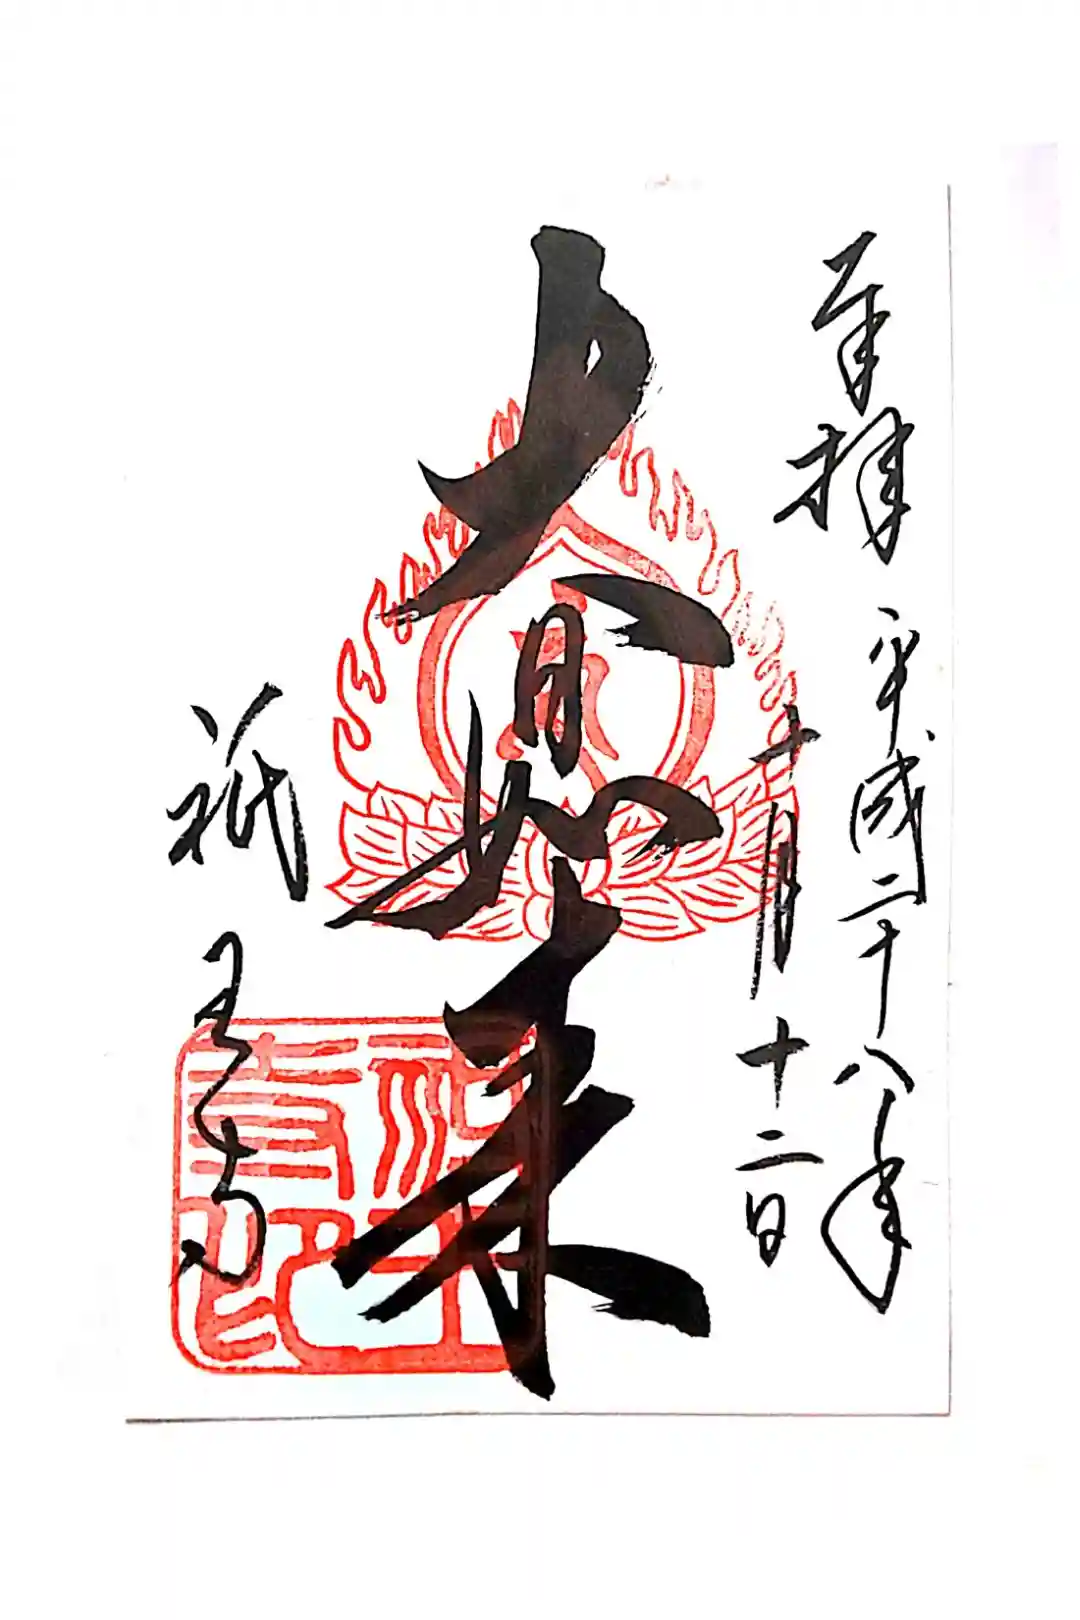 奉拝 平成二十八年
十月十二日
大日如来
祇王寺
祇王寺印